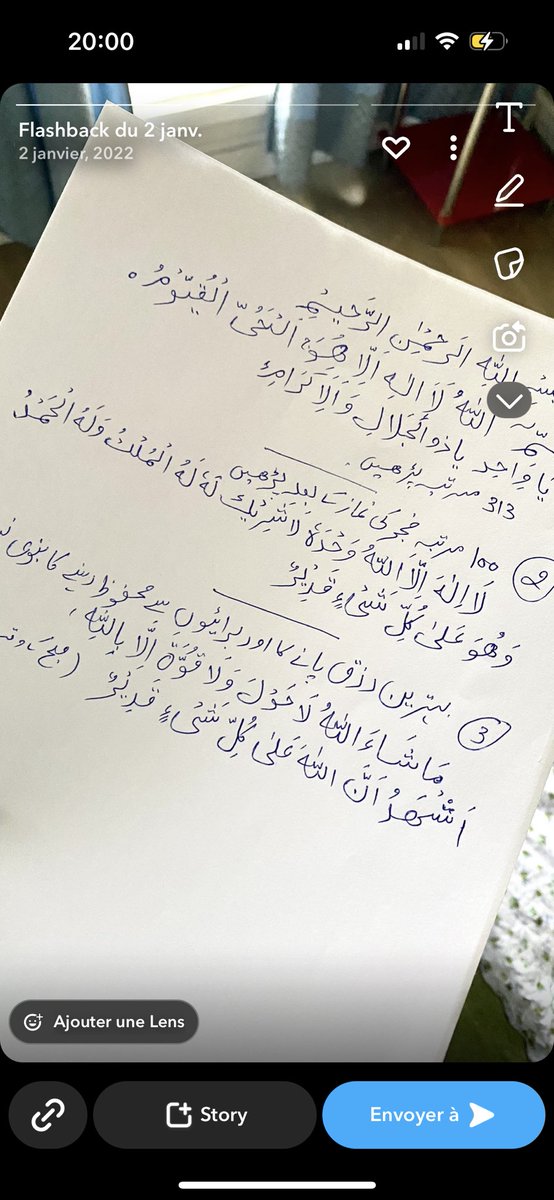 20:00
Flashback du 2 janv.
2 janvier, 2022
T
اللهِ الرَّحْمٰنِ الرَّحِيْمِ
اَللّٰهُ لَا اِلٰهَ اِلَّا هُوَ الْحَىُّ الْقَيُّوْمُ
يَا وَاحِد يَا ذو الْجَلَالِ وَالْاِكْرَامِ
313 مرتبہ پڑھیں
② 100 مرتبہ فجر کی نماز کے بعد پڑھیں
لَا اِلٰهَ اِلَّا اللّٰهُ وَحْدَهٗ لَا شَرِيْكَ لَهٗ لَهُ الْمُلْكُ وَلَهُ الْحَمْدُ
وَهُوَ عَلٰى كُلِّ شَىْءٍ قَدِيْرٌ
③ بہترین رزق پانے کا اور برائیوں سے محفوظ رہنے کا نبوی
مَا شَاءَ اللّٰهُ لَا حَوْلَ وَلَا قُوَّةَ اِلَّا بِاللّٰهِ
اَشْهَدُ اَنَّ اللّٰهَ عَلٰى كُلِّ شَىْءٍ قَدِيْرٌ
Ajouter une Lens
Story
Envoyer à